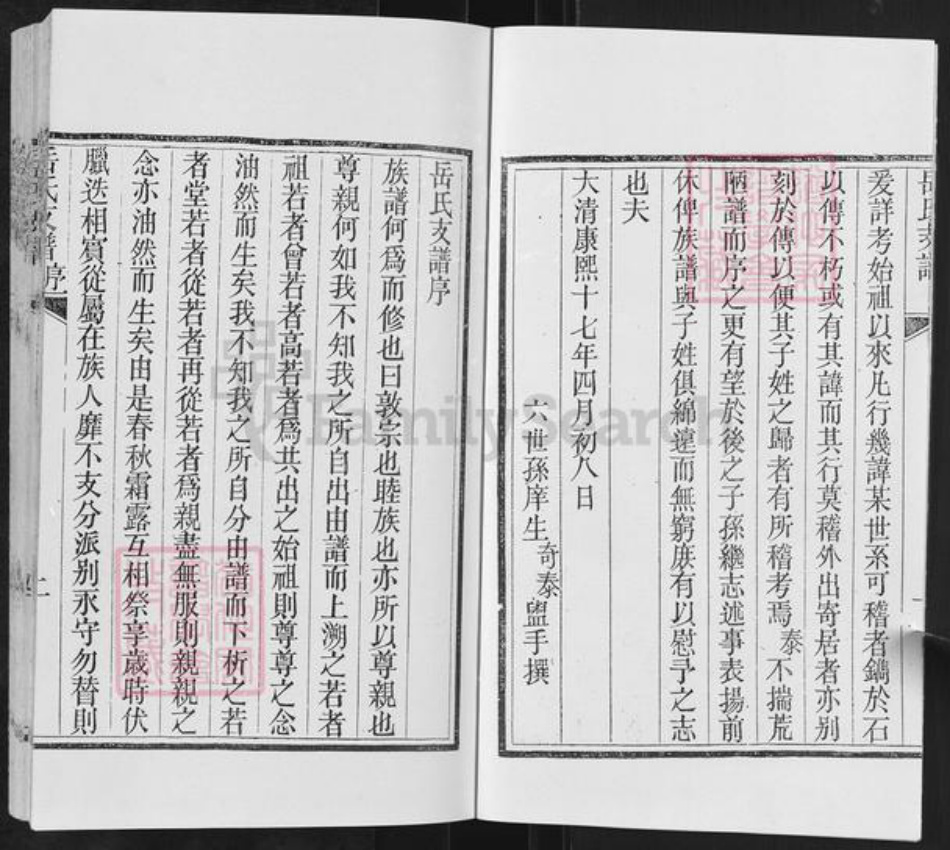 岳氏支譜
爰詳考始祖以來凡行幾諱某世系可稽者鐫於石
以傳不朽或有其諱而其行莫稽外出寄居者亦别
刻於傳以便其子姓之歸者有所稽考焉泰不揣荒
陋譜而序之更有望於後之子孫繼志述事表揚前
休俾族譜與子姓俱綿遠而無窮庶有以慰予之志
也夫
大清康熙十七年四月初八日
六世孫庠生奇泰盥手撰
岳氏支譜序
族譜何爲而修也曰敦宗也睦族也亦所以尊親也
尊親何如我不知我之所自出由譜而上溯之若者
祖若者曾若者高若者爲共出之始祖則尊尊之念
油然而生矣我不知我之所自分由譜而下析之若
者堂若者從若者再從若者爲親盡無服則親親之
念亦油然而生矣由是春秋霜露互相祭享歲時伏
臘迭相賓從屬在族人靡不支分派别永守勿替則
岳氏支譜序
二
FamilySearch